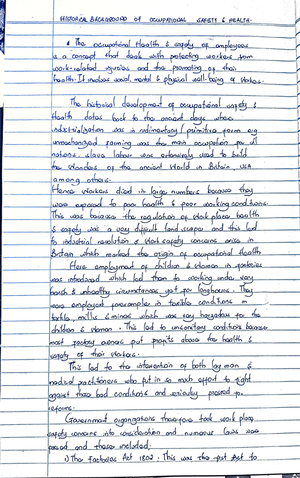 HISTORICAL BACKGROUND OF OCCUPATIONAL SAFETY & HEALTH
The occupational Health & safety of employees
is a concept that deals with protecting workers from
work-related injuries and the promoting of their
health. It involves social mental & physical well-being of workers.
The historical development of occupational safety &
Health dates back to the ancient days where
industrialization was in rudimentary/primitive form eg
unmechanized farming was the main occupation for all
nations. slave labour was extensively used to build
the wonders of the ancient World in Britain USA
among others.
Hence workers died in large numbers because they
were exposed to poor health & poor working conditions.
This was because the regulation of work place health
& safety was a very difficult land scape and this led
to industrial revolution & work safety concerns arose in
Britain which marked the origin of occupational Health
Here employment of children & women in factories
was introduced which led them to working under very
harsh & unhealthy circumstances yet for long hours. They
were employed for example in terrible conditions in
textile, mills & mines which was very hazardous for the
children & women. This led to unsanitary conditions because
most factory owners put profits above the health &
safety of their workers.
This led to the intervention of both lay men &
medical practitioners who put in so much effort to fight
against these bad conditions and seriously pressed for
reforms.
Government organisations therefore took work place
safety concerns into consideration and numerous laws were
passed and these included;
i) The Factories Act 1802: This was the first Act to